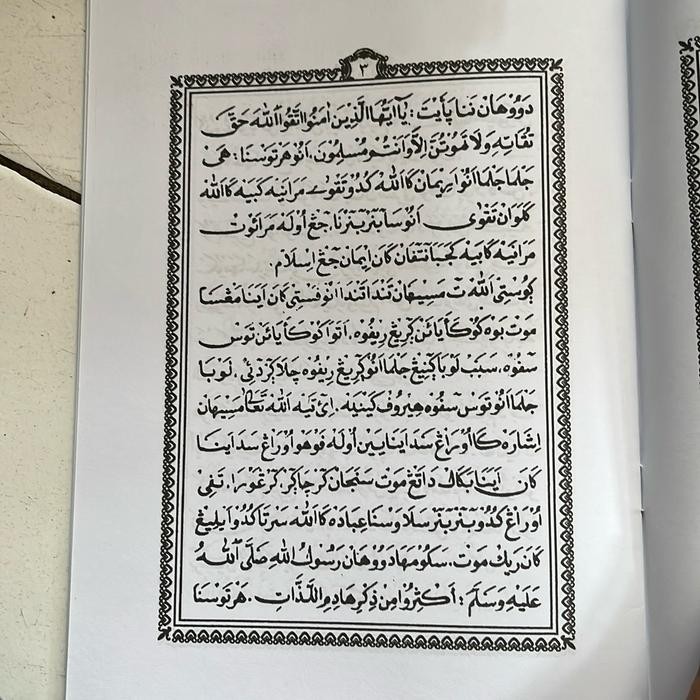 ٣
دووهان ننا ڤأيت: يٰاَيُّهَا الَّذِيْنَ اٰمَنُوا اتَّقُوا اللّٰهَ حَقَّ
تُقَاتِهِ وَلَا تَمُوْتُنَّ اِلَّا وَاَنْتُمْ مُسْلِمُوْنَ، انو هرتوسنا: هَىْ
جلما جلما انو اريمان كا اللّٰه كدو تقوىٰ مرانيه كبيه كا اللّٰه
كلوان تقوى انو سابنر بنرنا، جڠ اوله مراتوت
مرانيه كابيه كجبا نتڤان كان ايمان جڠ اسلام.
ڬوستي اللّٰه ت مسيهان تندا تندا انو ڤستي كان اينا مڠسنا
موت بوه كوكأيائن ڬريڠ ريڤوه، اتوا كوكأيائن توس
سڤوه، سبب لوبا كنيڠ جلما انو ڬريڠ ريڤوه چلاكردئي، لوبا
جلما انو توس سڤوه هيروڤ كينيه. اِئتيه اللّٰه تعالى مسيهان
اشاره كا اوراڠ سد اينا يين اوله ڤوهو اوراڠ سد اينا
كان اينا بكال داتڠ موت سنجان كرچاكر، كر غورا، تڤي
اوراڠ كدو بنر بنر سلاوسنا عباده كا اللّٰه سرتا كدو ايليڠ
كان ريك موت، سكومها دووهان رسول اللّٰه صَلَّى اللّٰهُ
عَلَيْهِ وَسَلَّمَ: اَكْثِرُوْا مِنْ ذِكْرِ هَادِمِ اللَّذَّاتِ. هرتوسنا